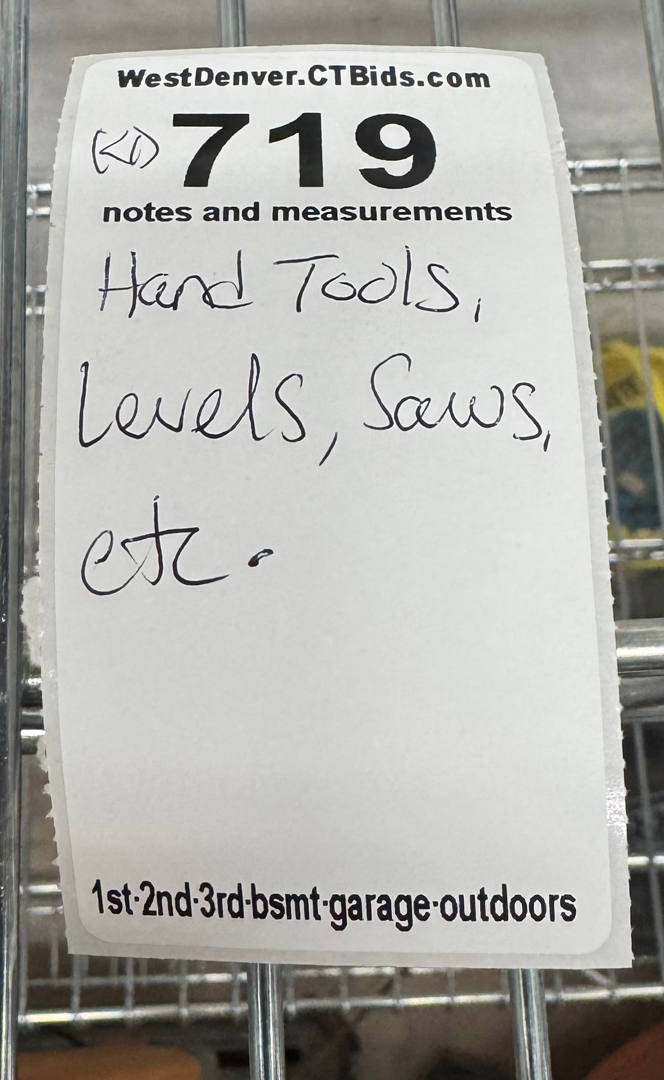 WestDenver.CTBids.com
719
notes and measurements
Hand Tools,
Levels, Saws,
etc.
1st·2nd·3rd·bsmt·garage·outdoors